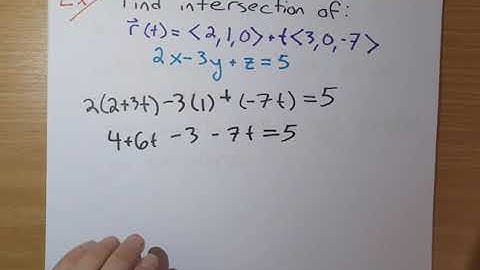 Ex) Find intersection of:
r⃗(t) = <2,1,0> + t<3,0,-7>
2x-3y+z=5
2(2+3t)-3(1)+(-7t)=5
4+6t-3-7t=5